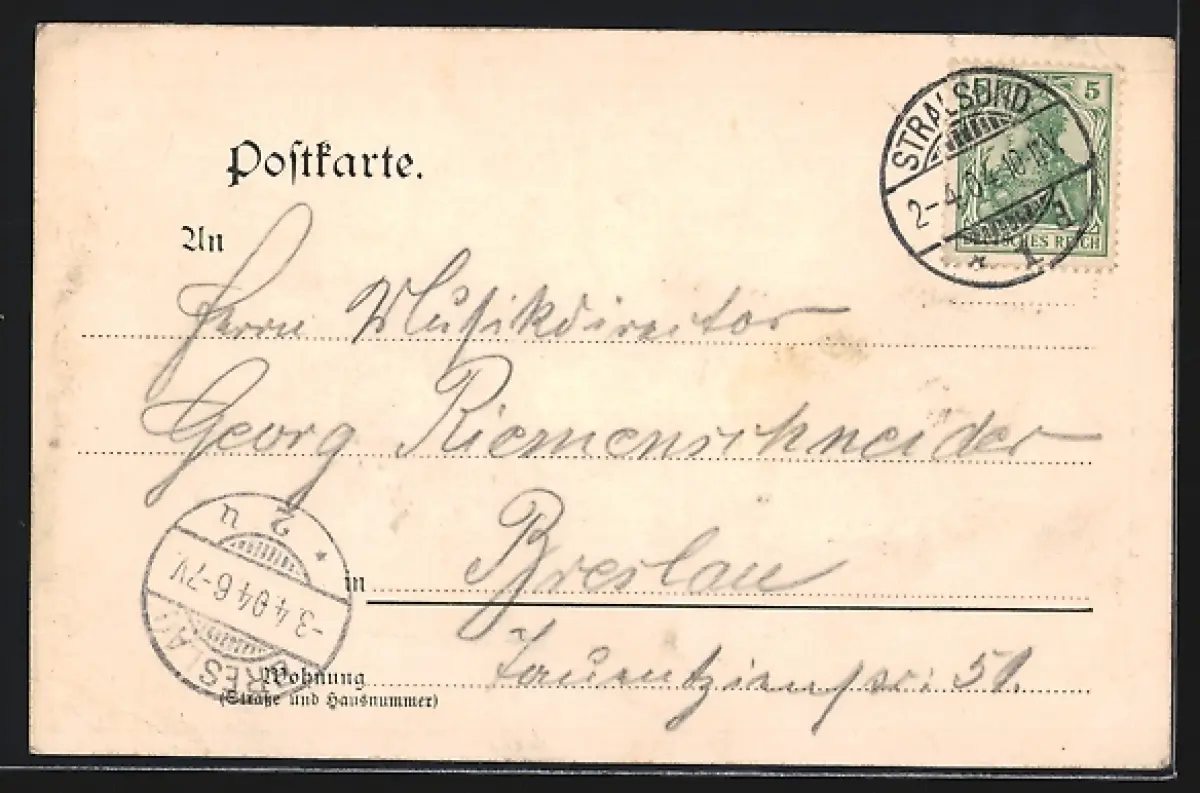 Postkarte.
5
STRALSUND
2-4.04.10-11V.
* 1 B
DEUTSCHES REICH
An
Herrn Musikdirector
Georg Riemenschneider
in Breslau
Wohnung Tauentzienstr: 51.
(Straße und Hausnummer)
BRESLAU
-3.4.04.6-7V
* 2 u